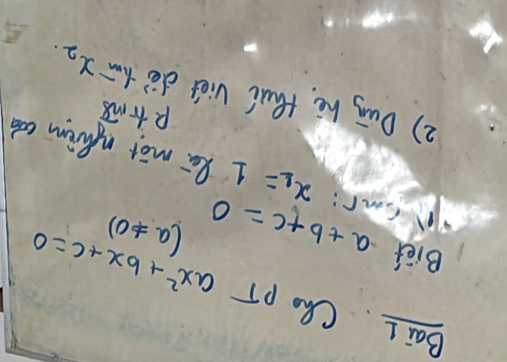 Bài 1. Cho PT ax² + bx + c = 0
(a ≠ 0)
Biết a + b + c = 0
1) Cmr: x₁ = 1 là một nghiệm của
p trình
2) Dùng hệ thức Viét để tìm x₂.